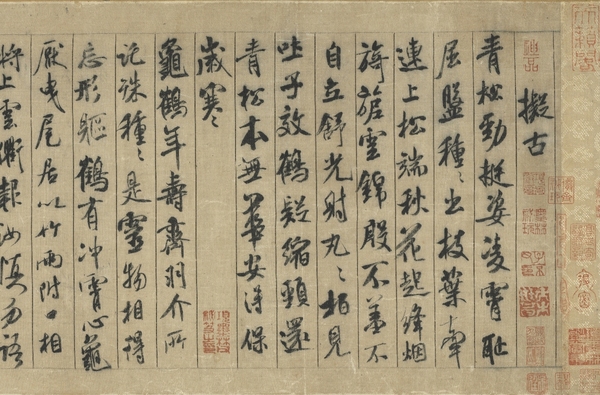 擬古
青松勁挺姿凌霄恥
屈盤種〻出枝葉牽
連上松端秋花起絳烟
旖旎雲錦殷不羞不
自立舒光射丸〻柏見
吐子效鶴疑縮頸還
青松本無華安得保
歲寒〻
龜鶴年壽齊羽介所
託殊種〻是靈物相得
忘形軀鶴有沖霄心龜
厭曳尾居以竹兩附口相
將上雲衢報汝慎勿語